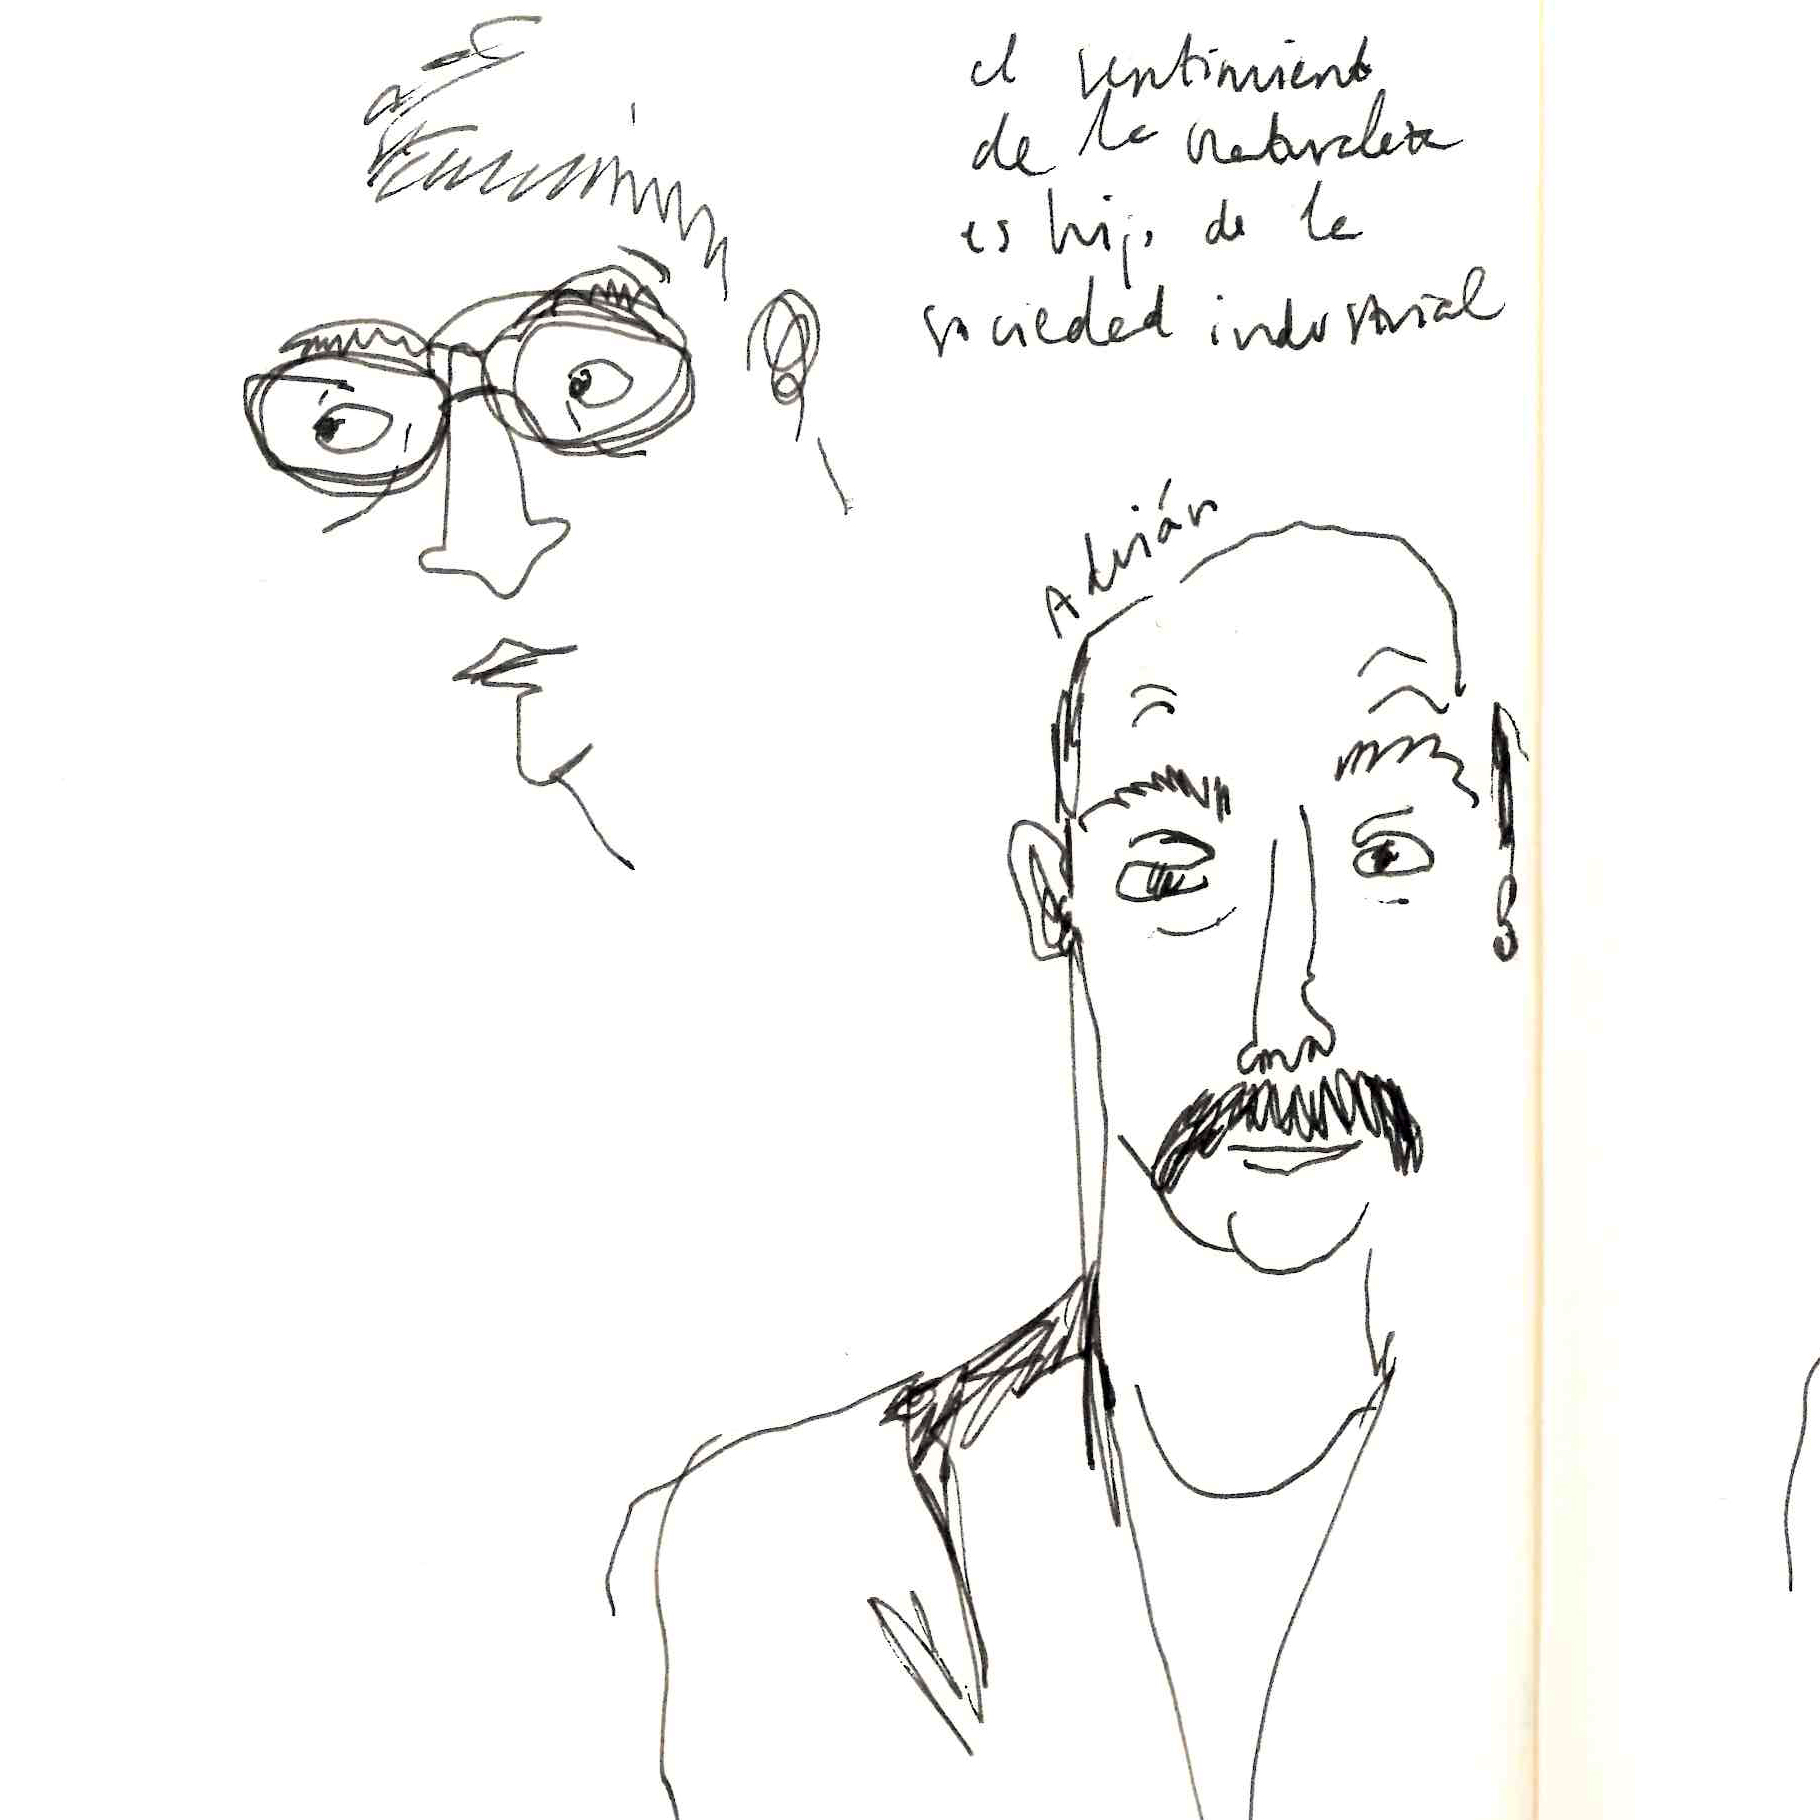 el sentimiento
de la naturaleza
es hijo de la
sociedad industrial
Adrián